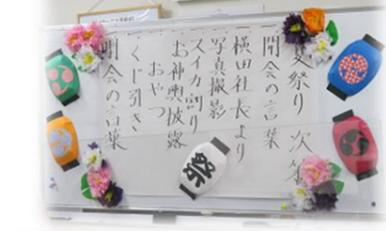 夏祭り 次第
一 開会の言葉
一 横田社長より
一 写真撮影
一 スイカ割り
一 お神輿披露
一 おやつ
一 くじ引き
一 閉会の言葉
祭